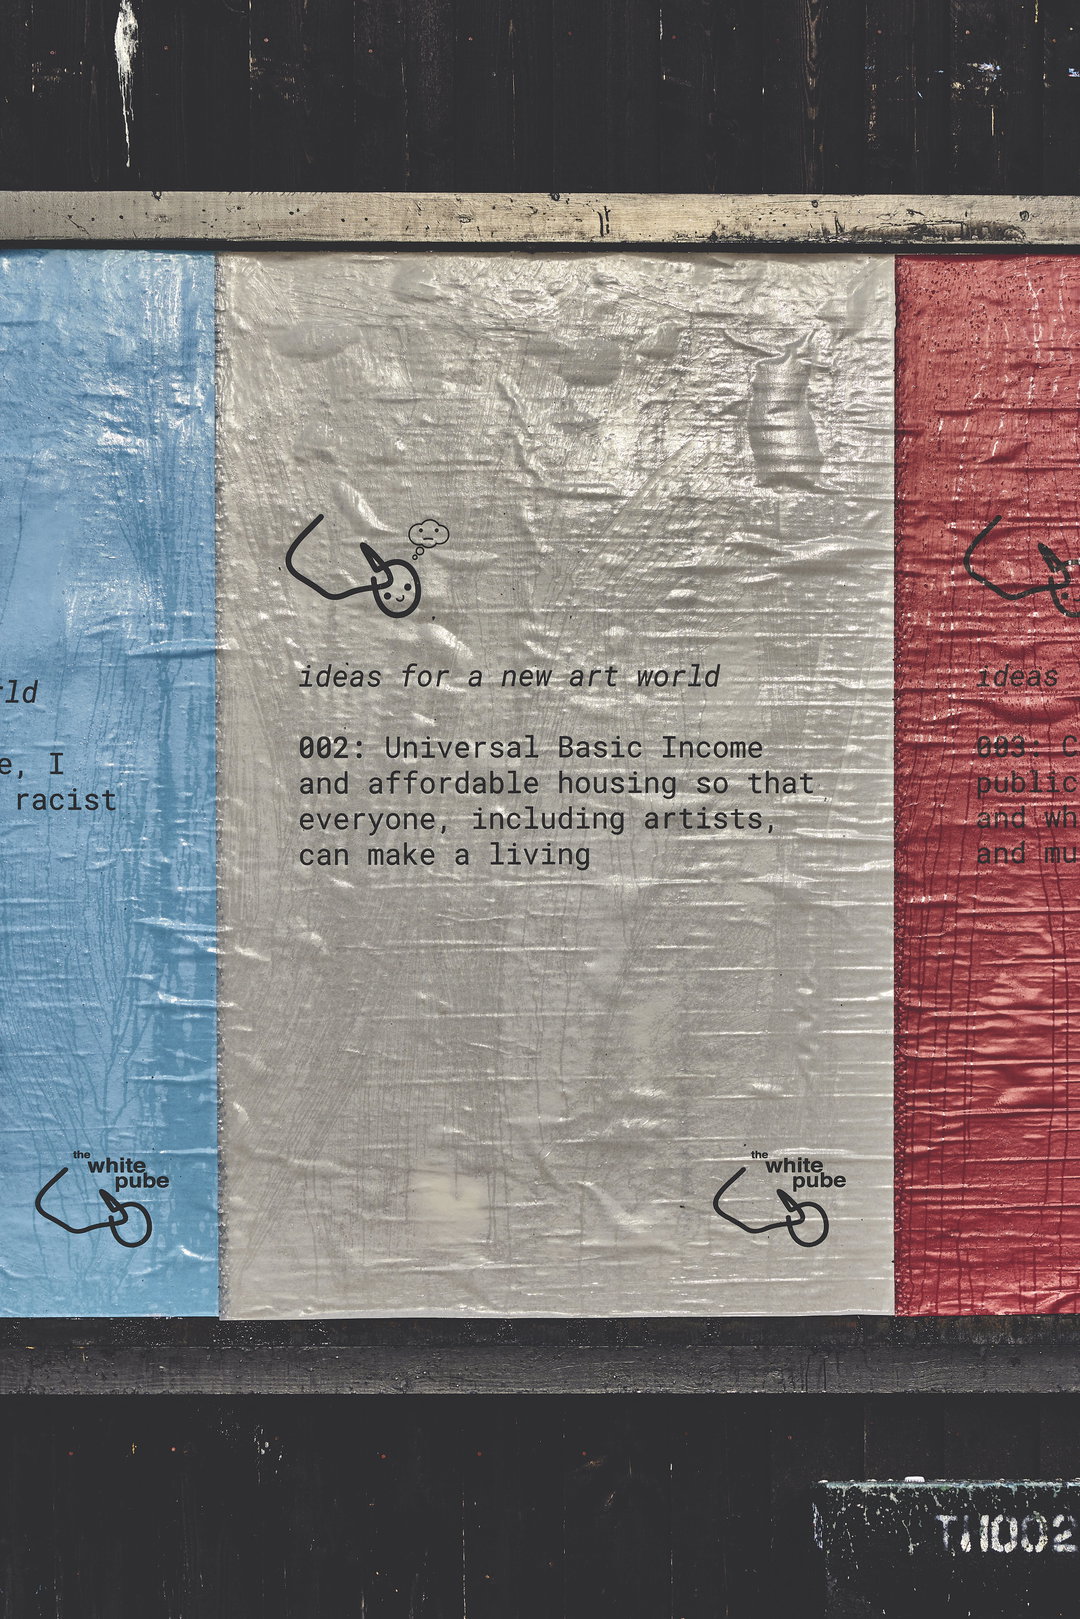 rld
e, I
racist
the
white
pube
ideas for a new art world
002: Universal Basic Income
and affordable housing so that
everyone, including artists,
can make a living
the
white
pube
ideas
003: C
public
and wh
and mu
TH002